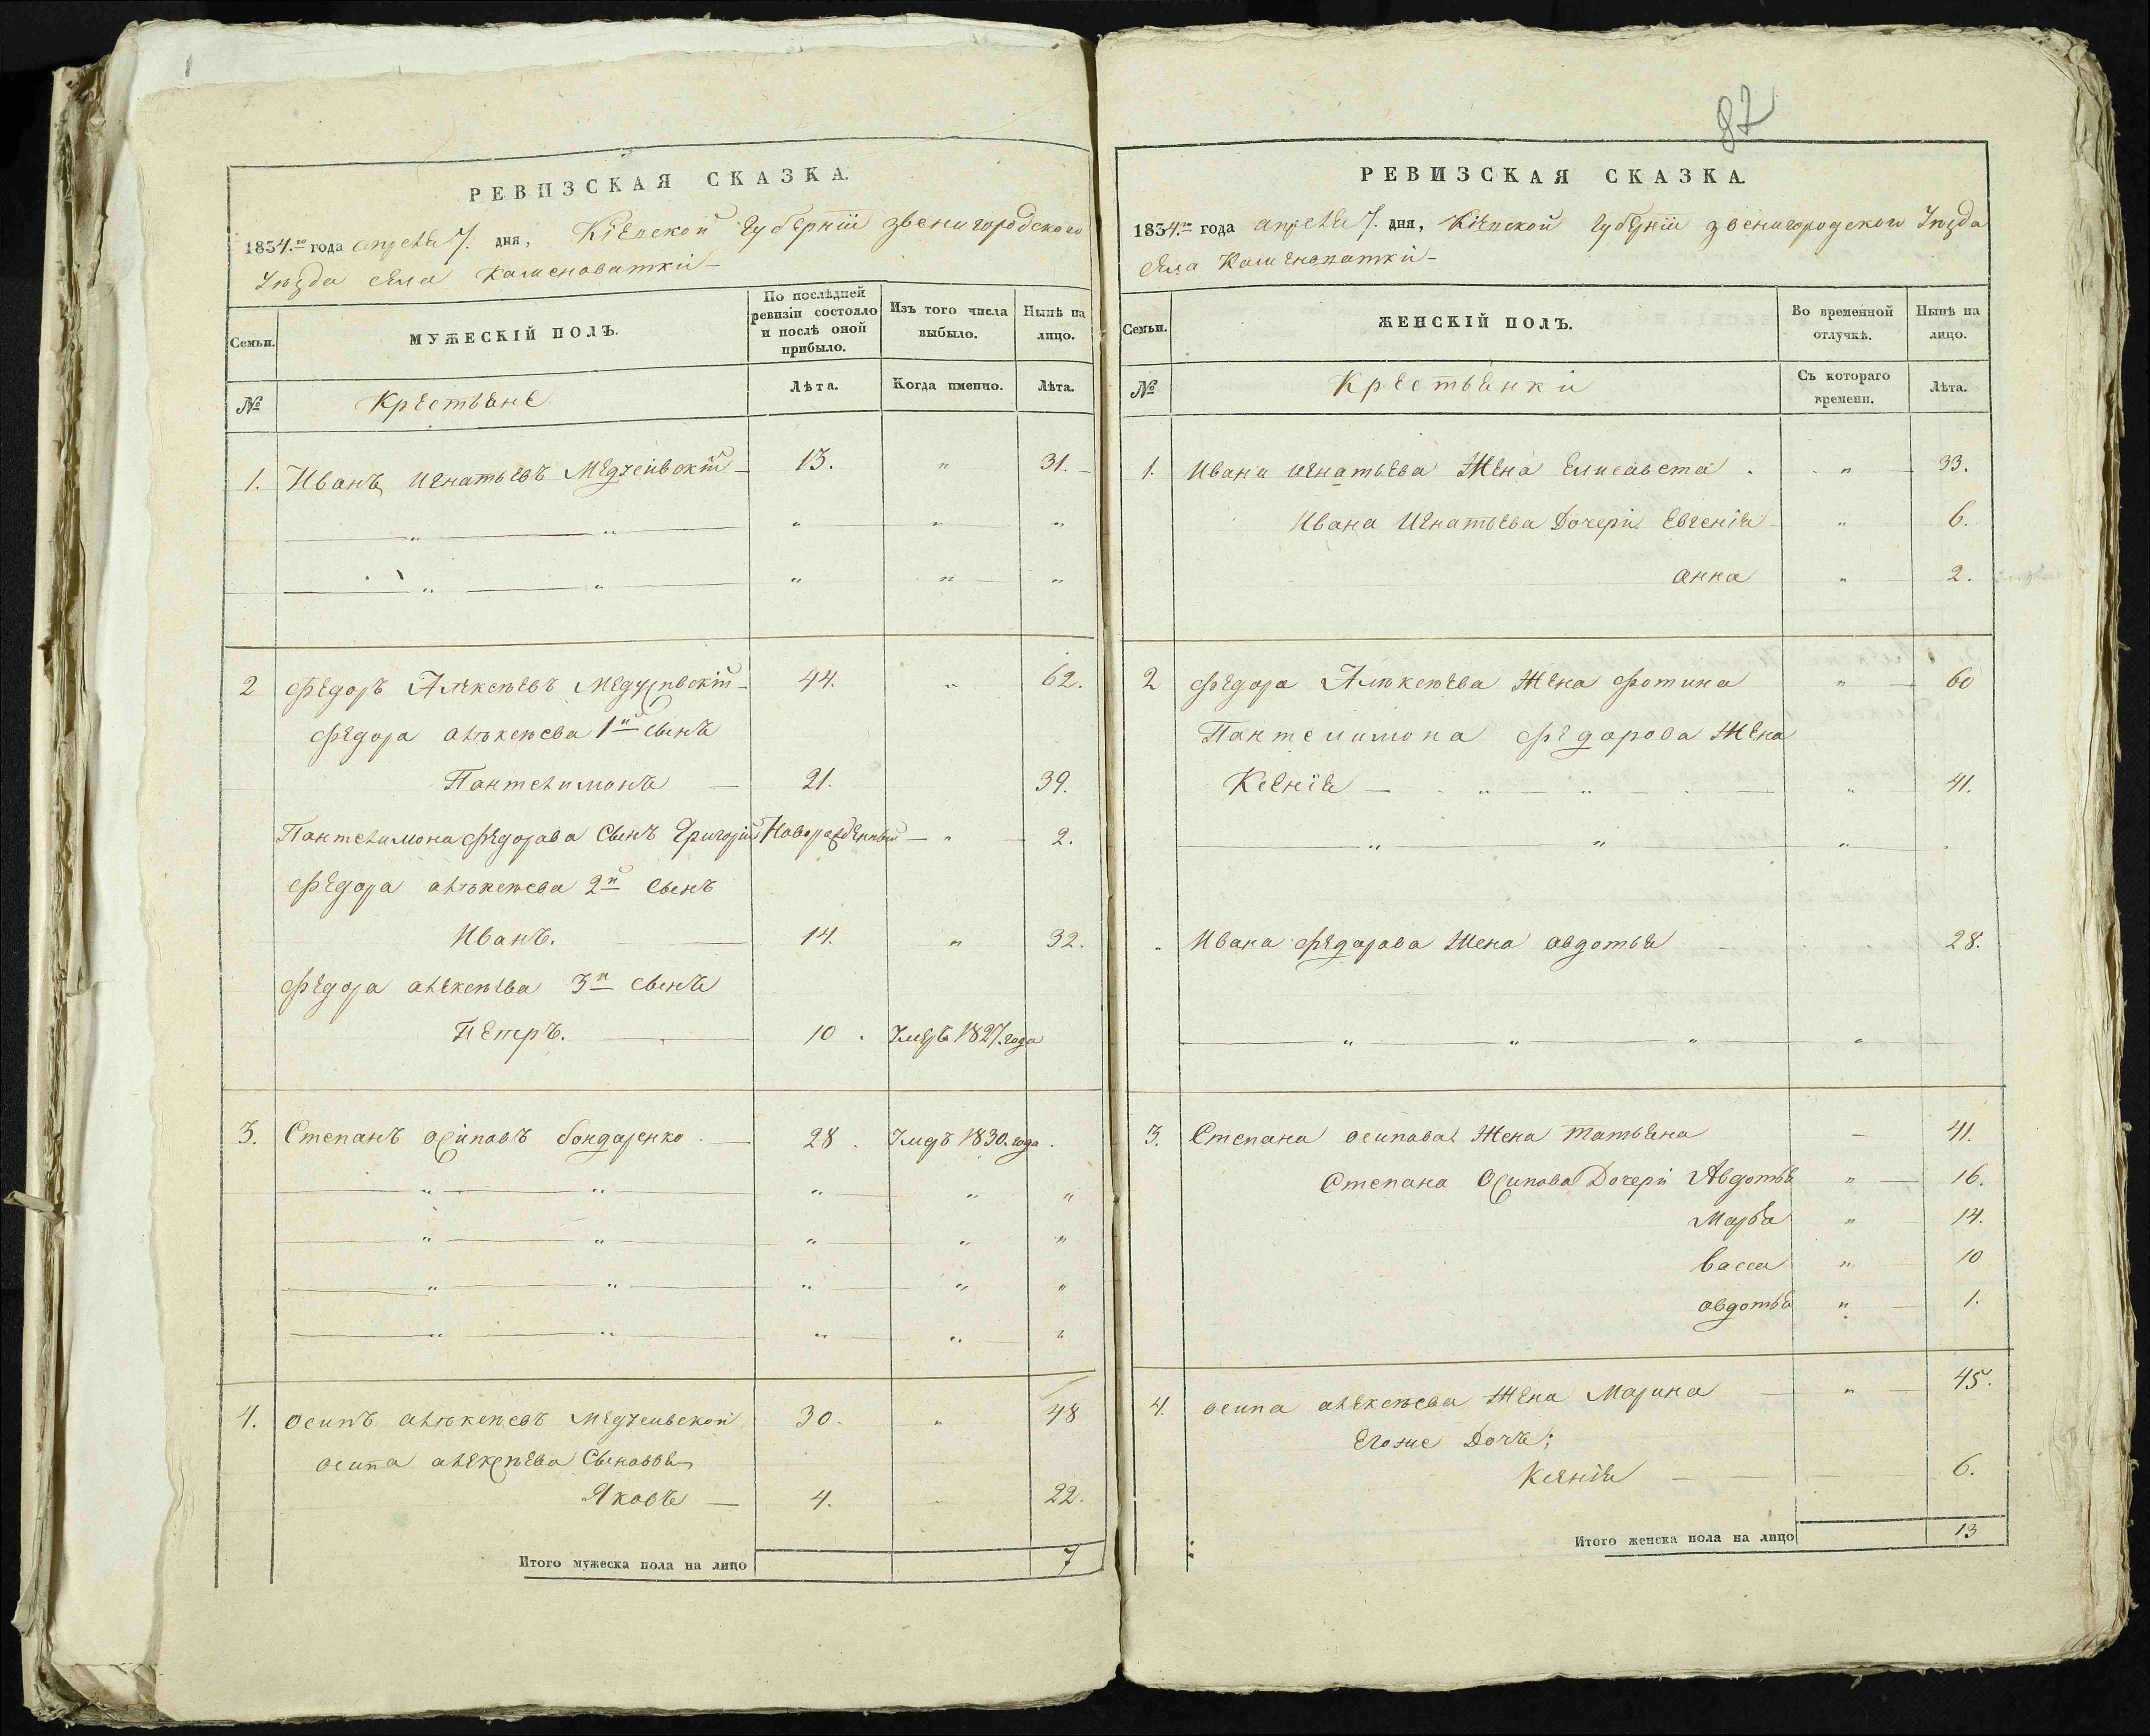 РЕВИЗСКАЯ СКАЗКА.
1834.го года апреля 7. дня, Кіевской Губерніи звенигородского
Уезда села Каменоватки
Семьи. МУЖЕСКІЙ ПОЛЪ. По послѣдней ревизіи состояло и послѣ оной прибыло. Изъ того числа выбыло. Нынѣ на лицо.
№ Крестьяне Лѣта. Когда именно. Лѣта.
1. Иванъ Игнатьевъ 13. " 31.
" " " " "
" " " " "
2 Федоръ Алексѣевъ 44. " 62.
Федора алексѣева 1й сынъ
Пантелимонъ 21. 39.
Пантелимона Федорава Сынъ Григорій Новорожденный " 2.
Федора алексѣева 2й Сынъ
Иванъ. 14. " 32.
Федора алексѣева 3й сынъ
Петръ. 10. Умеръ 1827. года
3. Степанъ Осиповъ бондаренко 28. Умеръ 1830. года.
" " " " "
" " " " "
" " " " "
" " " " "
4. осипъ алексѣевъ 30. " 48
осипа алексѣева Сыновья
Яковъ 4. 22.
Итого мужеска пола на лицо 7
82
РЕВИЗСКАЯ СКАЗКА.
1834.го года апреля 7. дня, Кіевской Губерніи звенигородскои Уезда
села Каменоватки
Семьи. ЖЕНСКІЙ ПОЛЪ. Во временной отлучкѣ. Нынѣ на лицо.
№ Крестьянки Съ котораго времени. Лѣта.
1. Ивана игнатьева Жена Елисавета " 33.
Ивана Игнатьева Дочери Евгенія " 6.
анна " 2.
2 Федора Алексѣева Жена Фотина " 60
Пантелимона Федорова Жена
Ксенія " " " 41.
" " "
Ивана Федорава Жена авдотья 28.
" " " "
3. Степана осипава Жена татьяна 41.
Степана Осипова Дочери Авдотья " 16.
Марья " 14.
васса " 10
авдотья " 1.
4. осипа алексѣева Жена Марина " 45.
Егоже Дочь;
Ксенія 6.
Итого женска пола на лицо 13